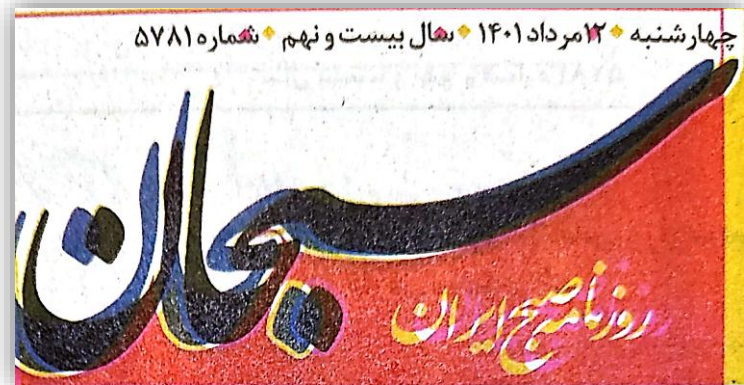 چهارشنبه ۱۲ مرداد ۱۴۰۱ سال بیست و نهم شماره ۵۷۸۱
سبحان
روزنامه صبح ایران